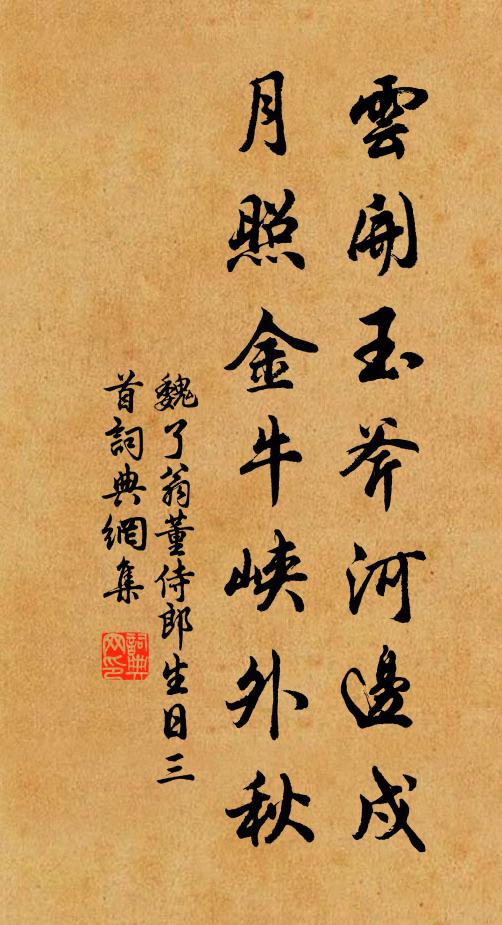 雲開玉斧河邊戍
月照金牛峽外秋
魏了翁董侍郎生日三
首詞典網集
詞典网印